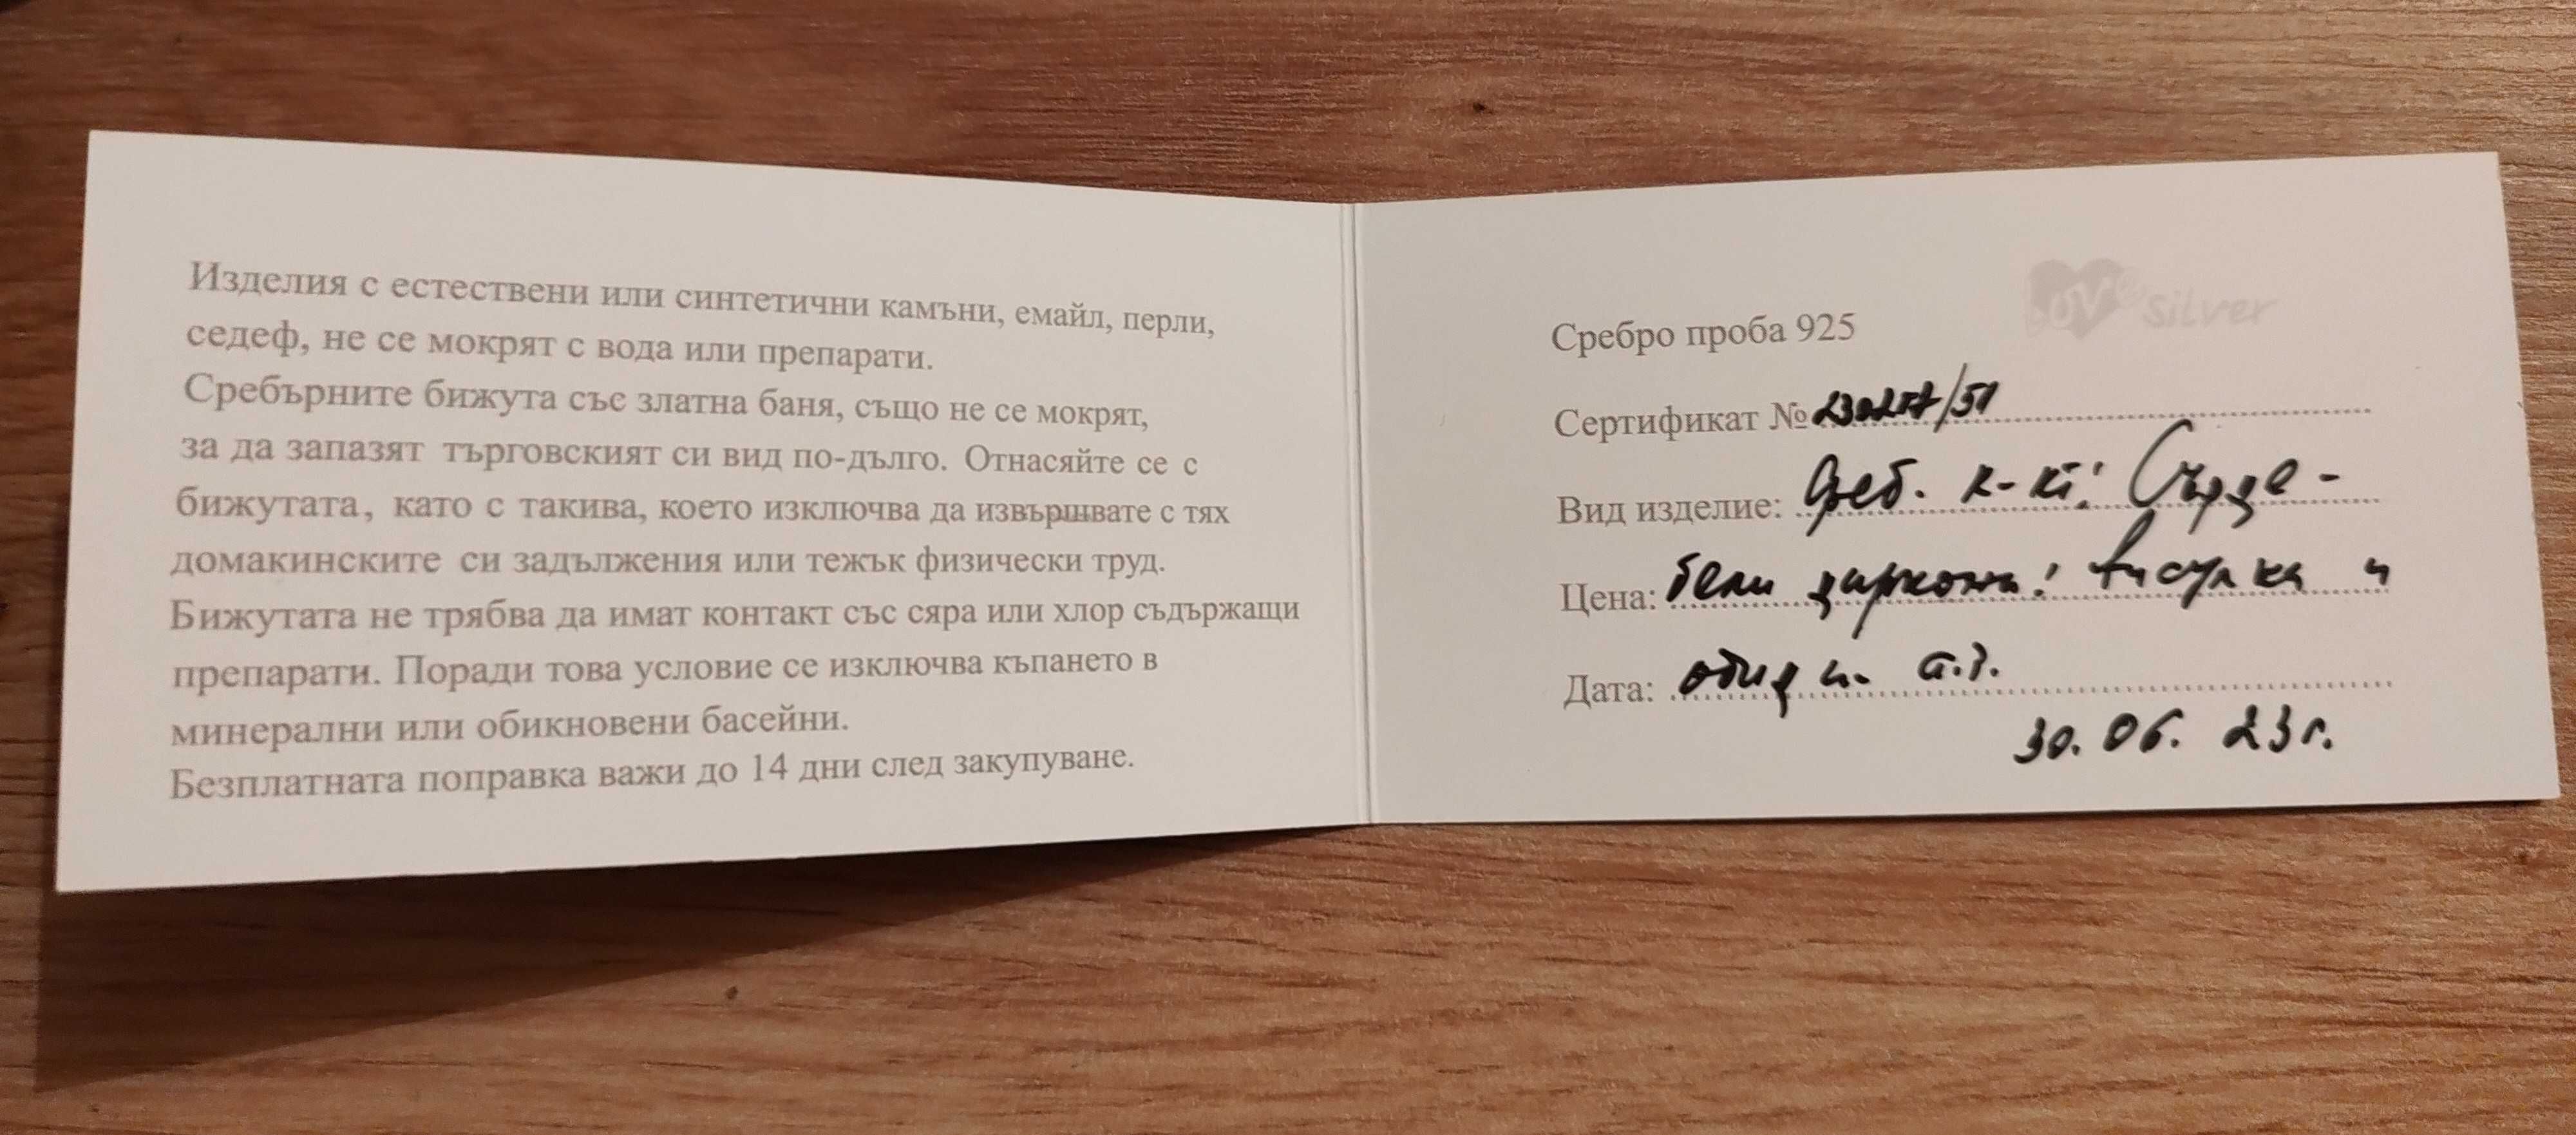 Изделия с естествени или синтетични камъни, емайл, перли,
седеф, не се мокрят с вода или препарати.
Сребърните бижута със златна баня, също не се мокрят,
за да запазят търговският си вид по-дълго. Отнасяйте се с
бижутата, като с такива, което изключва да извършвате с тях
домакинските си задължения или тежък физически труд.
Бижутата не трябва да имат контакт със сяра или хлор съдържащи
препарати. Поради това условие се изключва къпането в
минерални или обикновени басейни.
Безплатната поправка важи до 14 дни след закупуване.
LOVe silver
Сребро проба 925
Сертификат №
Вид изделие: Среб. к-кт: Сърце -
Цена: бели циркони! висулка и
Дата: обици
30.06.23г.